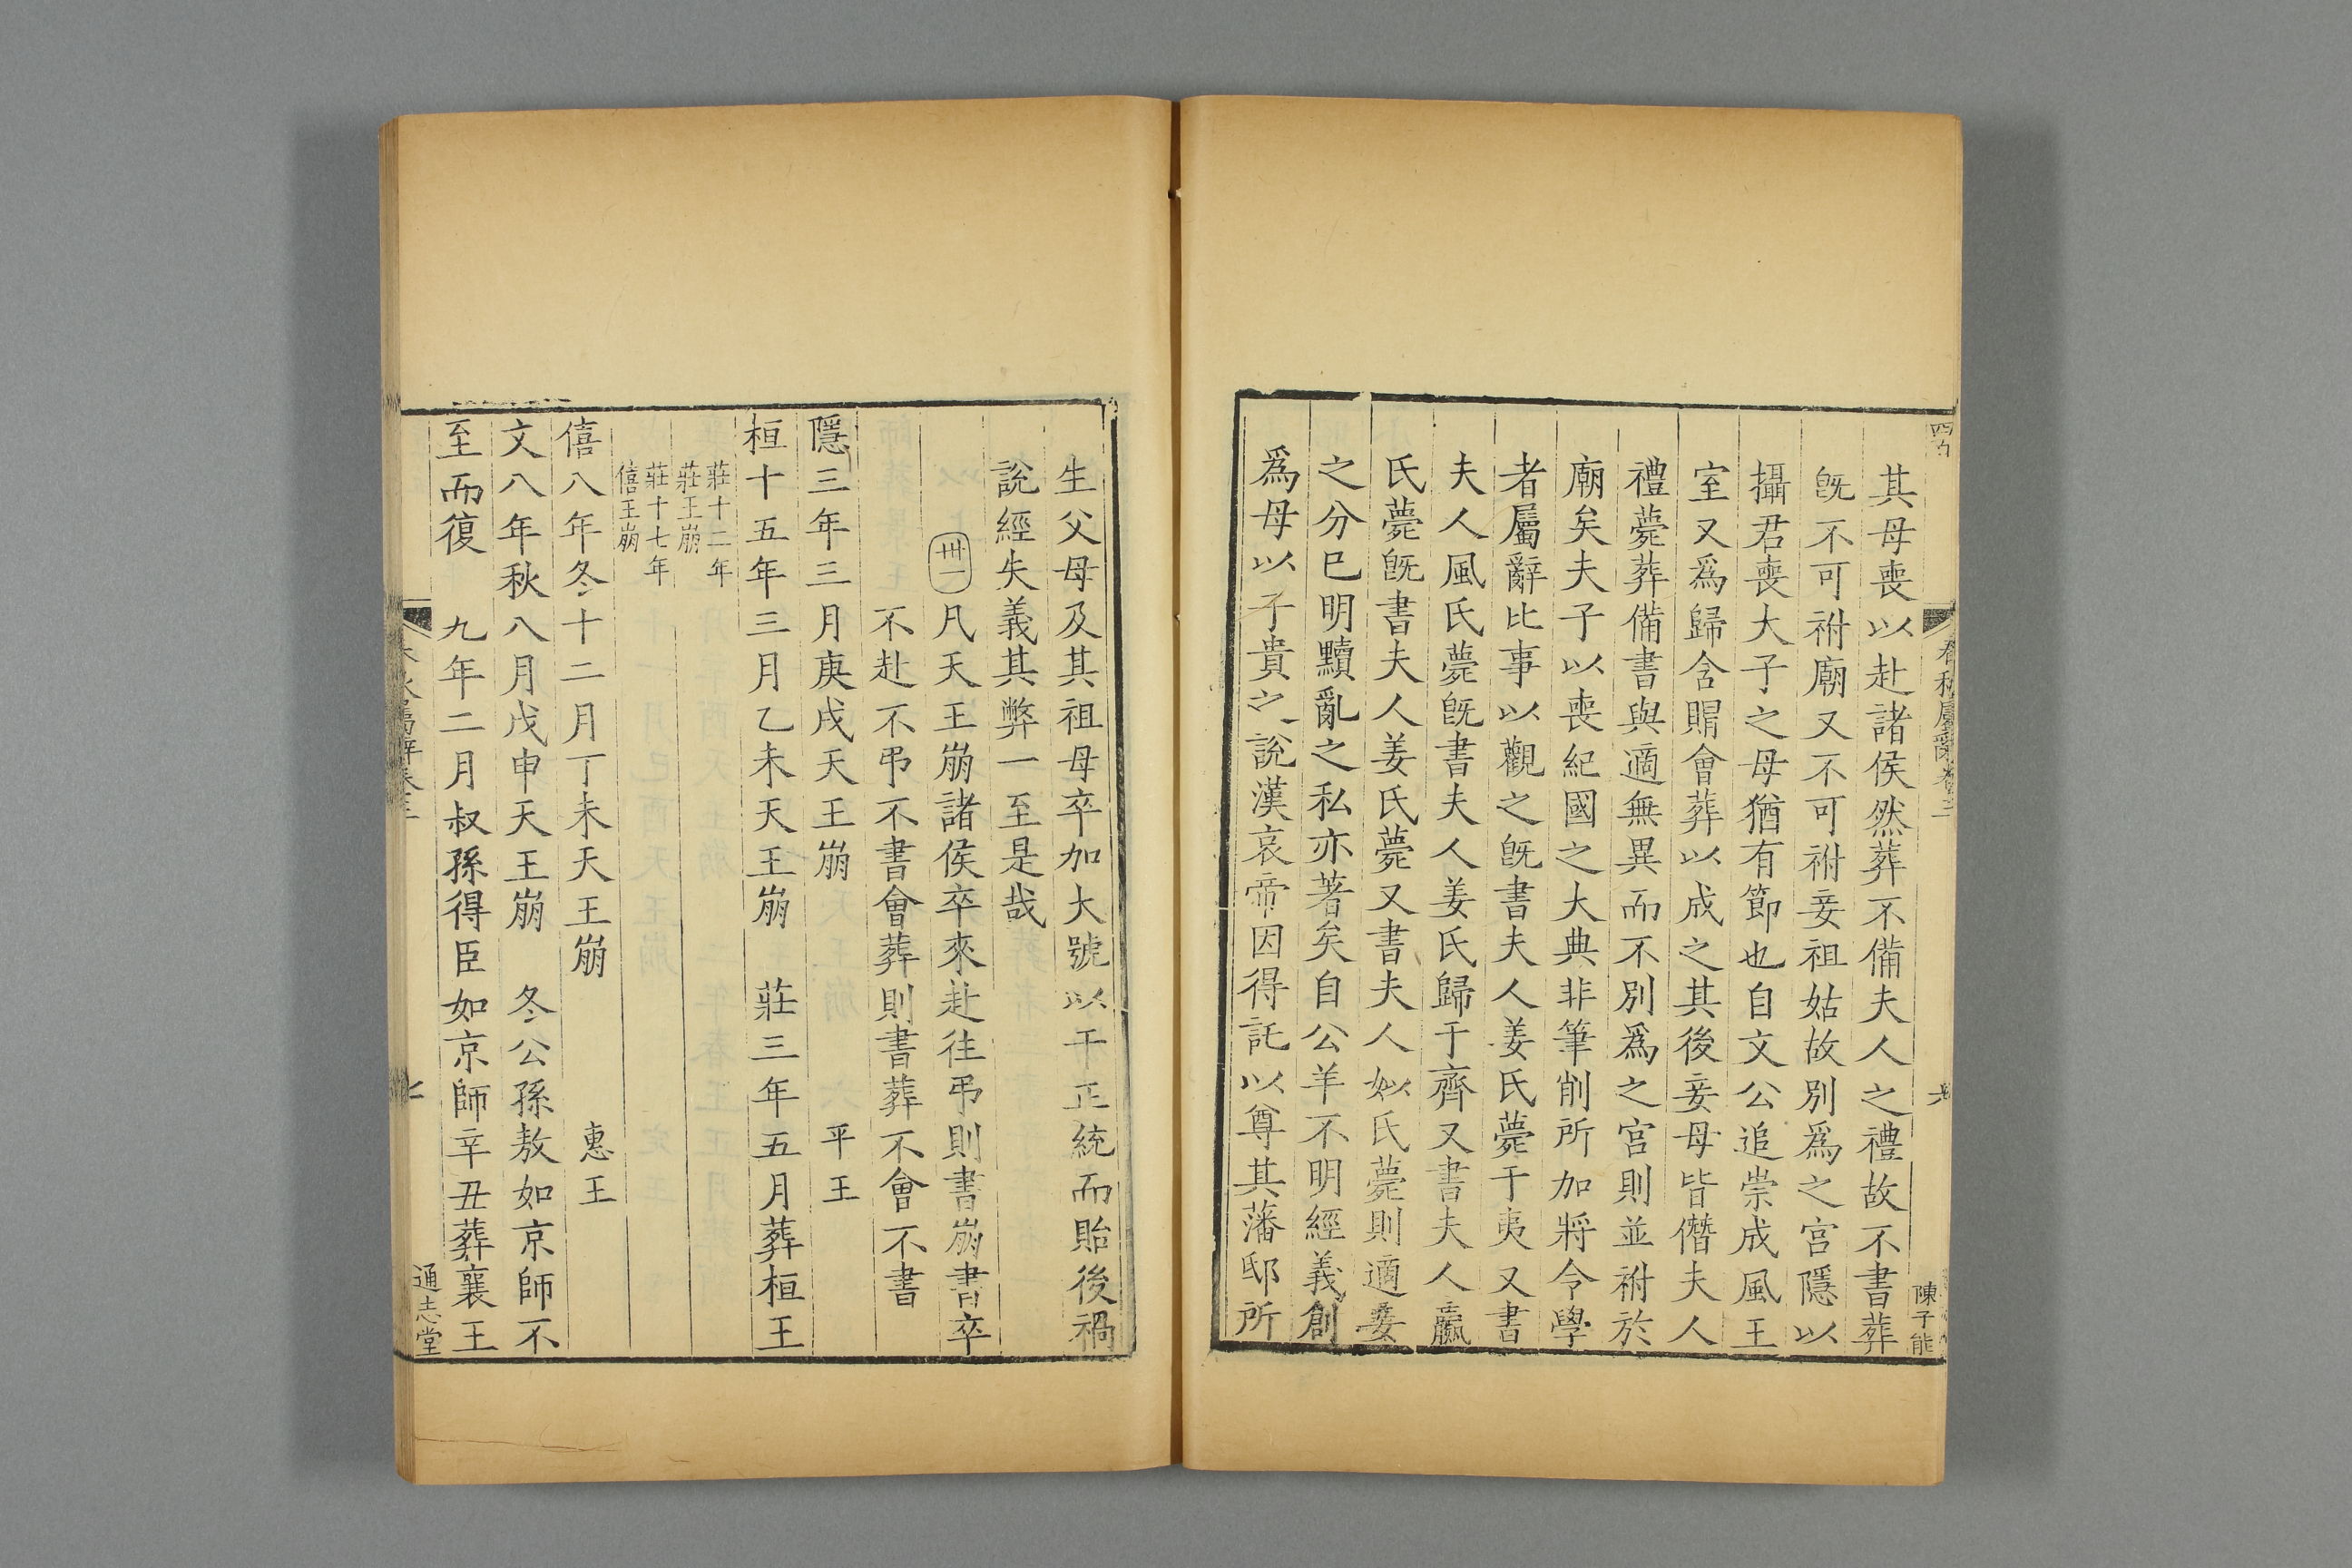 其母喪以赴諸侯然葬不備夫人之禮故不書葬
旣不可祔廟又不可祔妾祖姑故別爲之宮隱以
攝君喪大子之母猶有節也自文公追崇成風王
室又爲歸含賵會葬以成之其後妾母皆僭夫人
禮薨葬備書與適無異而不別爲之宮則並祔於
廟矣夫子以喪紀國之大典非筆削所加將令學
者屬辭比事以觀之旣書夫人姜氏薨于夷又書
夫人風氏薨旣書夫人姜氏歸于齊又書夫人嬴
氏薨旣書夫人姜氏薨又書夫人姒氏薨則適妾
之分巳明黷亂之私亦著矣自公羊不明經義創
爲母以子貴之說漢哀帝因得託以尊其藩邸所
陳子能
生父母及其祖母卒加大號以干正統而貽後禍
說經失義其弊一至是哉
卅一 凡天王崩諸侯卒來赴往弔則書崩書卒
不赴不弔不書會葬則書葬不會不書
隱三年三月庚戌天王崩 平王
桓十五年三月乙未天王崩 莊三年五月葬桓王
莊十二年
莊王崩
莊十七年
僖王崩
僖八年冬十二月丁未天王崩 惠王
文八年秋八月戊申天王崩 冬公孫敖如京師不
至而復 九年二月叔孫得臣如京師辛丑葬襄王
通志堂